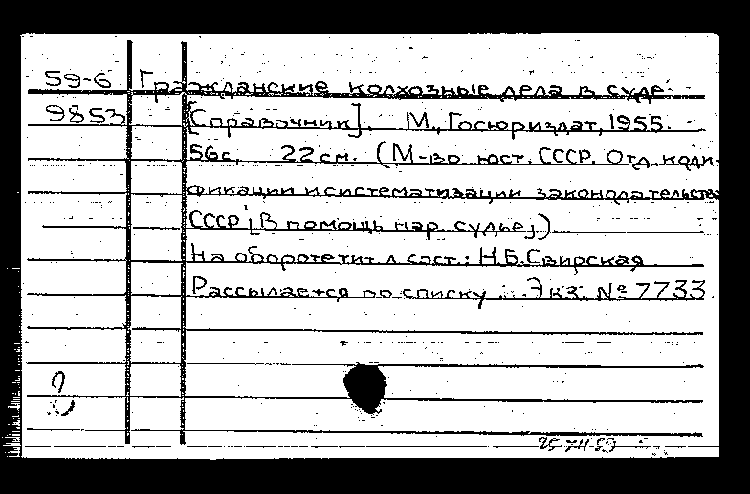 59-6 Гражданские колхозные дела в суде.
9853 [Справочник]. М., Госюриздат, 1955.
56с. 22см. (М-во юст. СССР. Отд. коди-
фикации и систематизации законодательства
СССР [В помощь нар. судье].)
На обороте тит. л сост.: Н.Б.Свирская
Рассылается по списку. Экз. № 7733